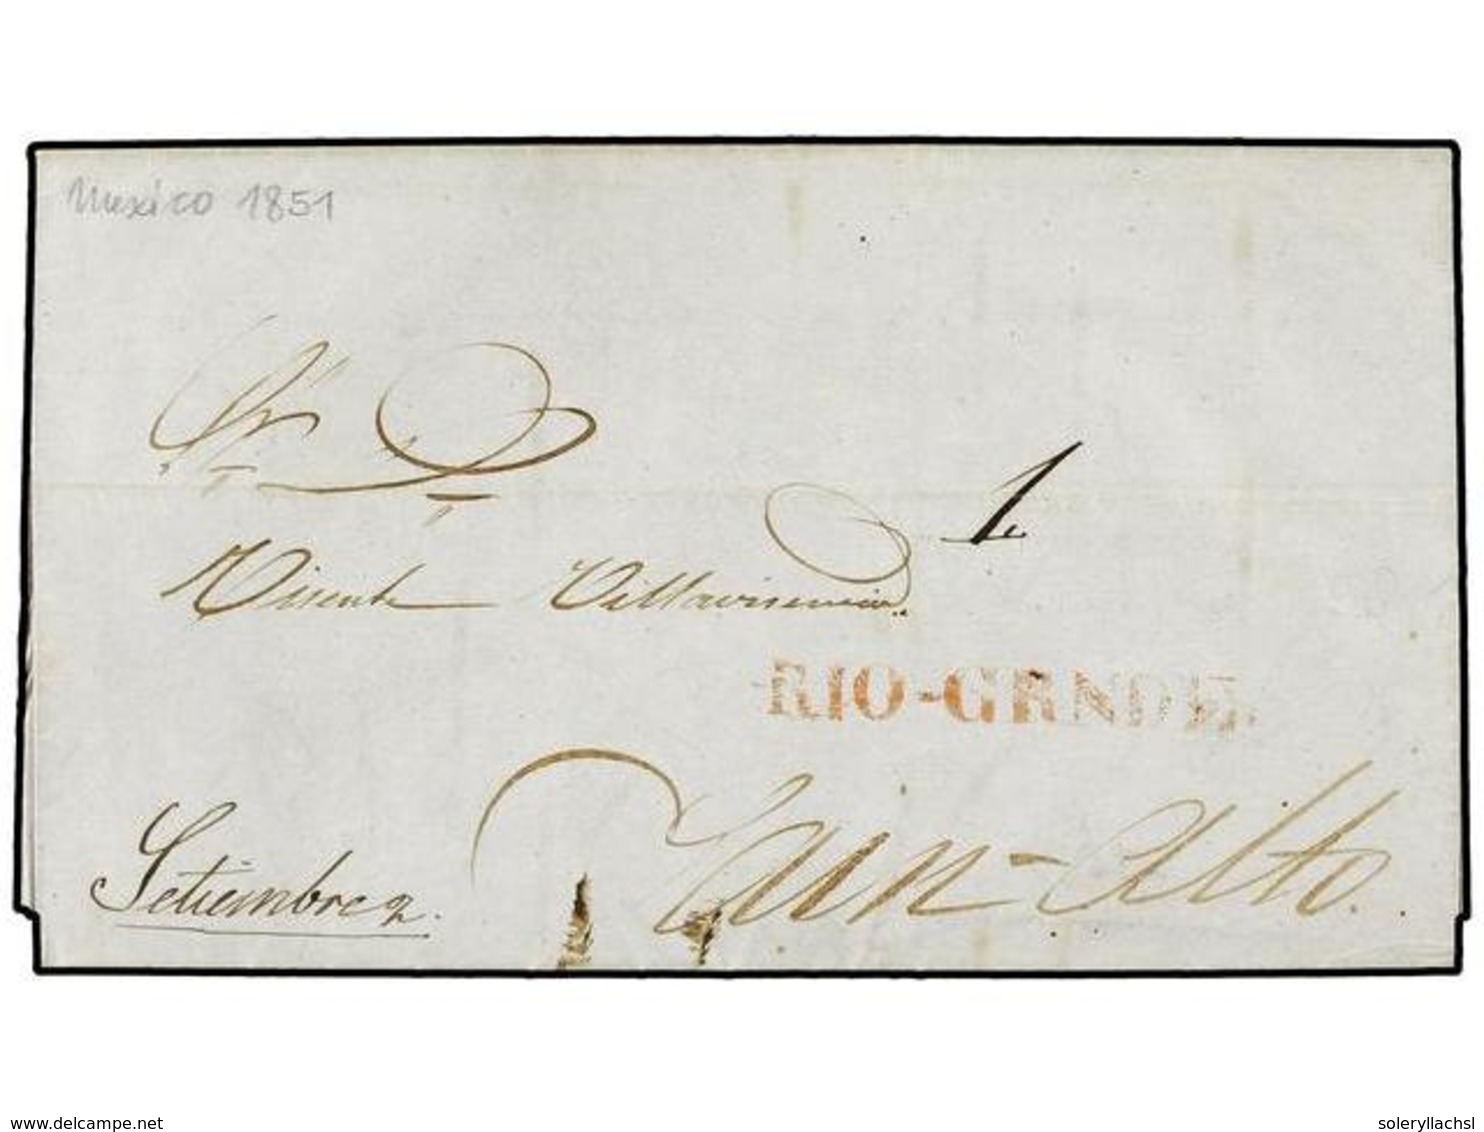 Mexico 1851
Sr. D.
1
Visente Villavisencio
RIO-GRNDE.
Setiembre 2.
San-Alto.
delcampe.net
soleryllachsl